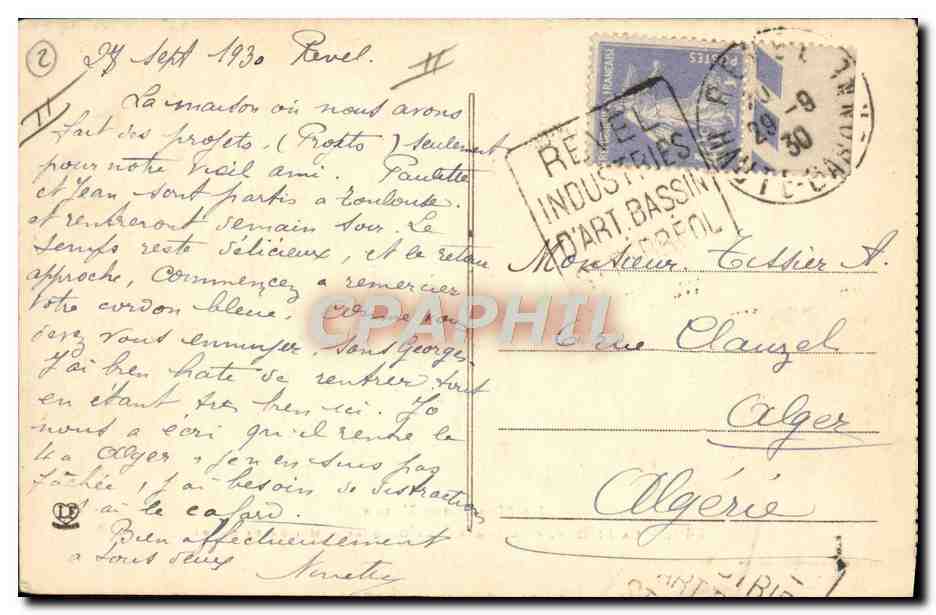 2
27 Sept 1930 Revel.
La maison où nous avons
fait des projets, (Prosts) seulement
pour notre vieil ami. Paulette
et Jean sont partis à Toulouse.
et rentreront demain soir. Le
temps reste délicieux, et le retour
approche, commencez à remercier
votre cordon bleue. comme vous
devez vous ennuyer, sans Georges
J'ai bien hate de rentrer tout
en étant très bien ici. Jo
nous a écri qu'il rentre le
4 a Alger, j'en suis pas
fâchée, j'ai besoin de distractions
j'ai le cafard.
Bien affectueusement
a tous deux
POSTES
FRANÇAISE
REVEL
INDUSTRIES
D'ART. BASSIN
REVEL
29 -9
30
HAUTE-GARONNE
Monsieur Tissier A.
6 rue Clauzel
Alger
Algérie
CPAPHIL